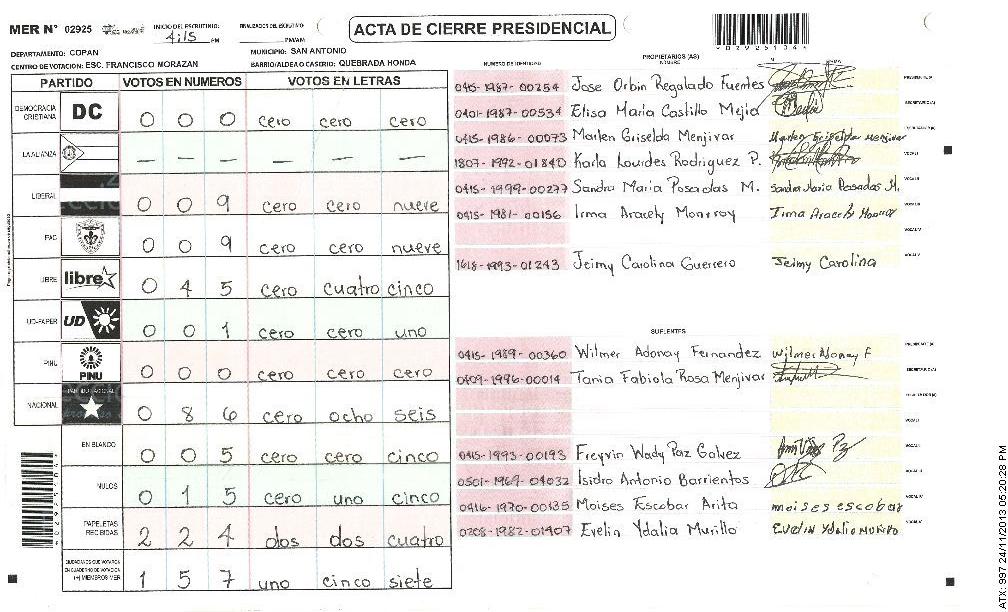 MER N° 02925
INICIO DEL ESCRUTINIO:
4:15 PM
FINALIZACION DEL ESCRUTINIO:
PM/AM
ACTA DE CIERRE PRESIDENCIAL
DEPARTAMENTO: COPAN
MUNICIPIO: SAN ANTONIO
CENTRO DE VOTACION: ESC. FRANCISCO MORAZAN
BARRIO/ALDEA O CASERIO: QUEBRADA HONDA
PARTIDO VOTOS EN NUMEROS VOTOS EN LETRAS
DEMOCRACIA CRISTIANA DC 0 0 0 cero cero cero
LA ALIANZA — — — — — —
LIBERAL 0 0 9 cero cero nueve
PAC 0 0 9 cero cero nueve
LIBRE libre 0 4 5 cero cuatro cinco
UD-FAPER UD 0 0 1 cero cero uno
PINU PINU 0 0 0 cero cero cero
NACIONAL 0 8 6 cero ocho seis
EN BLANCO 0 0 5 cero cero cinco
NULOS 0 1 5 cero uno cinco
PAPELETAS RECIBIDAS 2 2 4 dos dos cuatro
CIUDADANOS QUE VOTARON EN CUADERNO DE VOTACION (+) MIEMBROS MER 1 5 7 uno cinco siete
PROPIETARIOS (AS)
NUMERO DE IDENTIDAD NOMBRE FIRMA
0415-1987-00254 Jose Orbin Regalado Fuentes
0401-1987-00534 Elisa Maria Castillo Mejia
0415-1986-00073 Marlen Griselda Menjivar Marlen Griselda Menjivar
1807-1992-01840 Karla Lourdes Rodriguez P.
0415-1999-00277 Sandra Maria Posadas M. Sandra Maria Posadas M.
0415-1981-00156 Irma Aracely Monrroy Irma Aracely
1618-1993-01243 Jeimy Carolina Guerrero Jeimy Carolina
SUPLENTES
0415-1989-00360 Wilmer Adonay Fernandez Wilmer Adonay F
0409-1996-00014 Tania Fabiola Rosa Menjivar
0415-1993-00193 Freyvin Wady Paz Galvez
0501-1969-04032 Isidro Antonio Barrientos
0416-1970-00135 Moises Escobar Arita moises escobar
0208-1982-01407 Evelin Ydalia Murillo Evelin Ydalia Murillo
ATX: 997 24/11/2013 05:20:28 PM